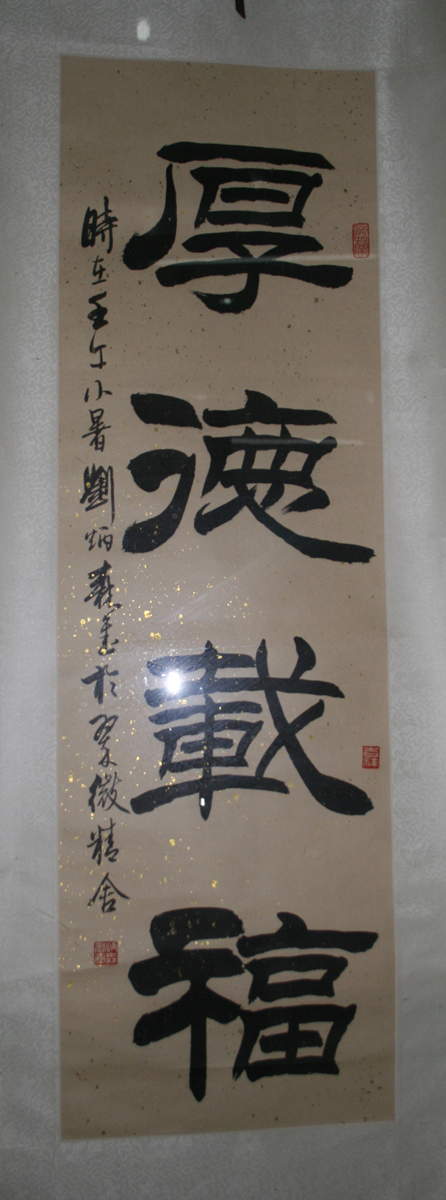 厚德載福
時在壬午小暑劉炳森書於翠微精舍
吉祥